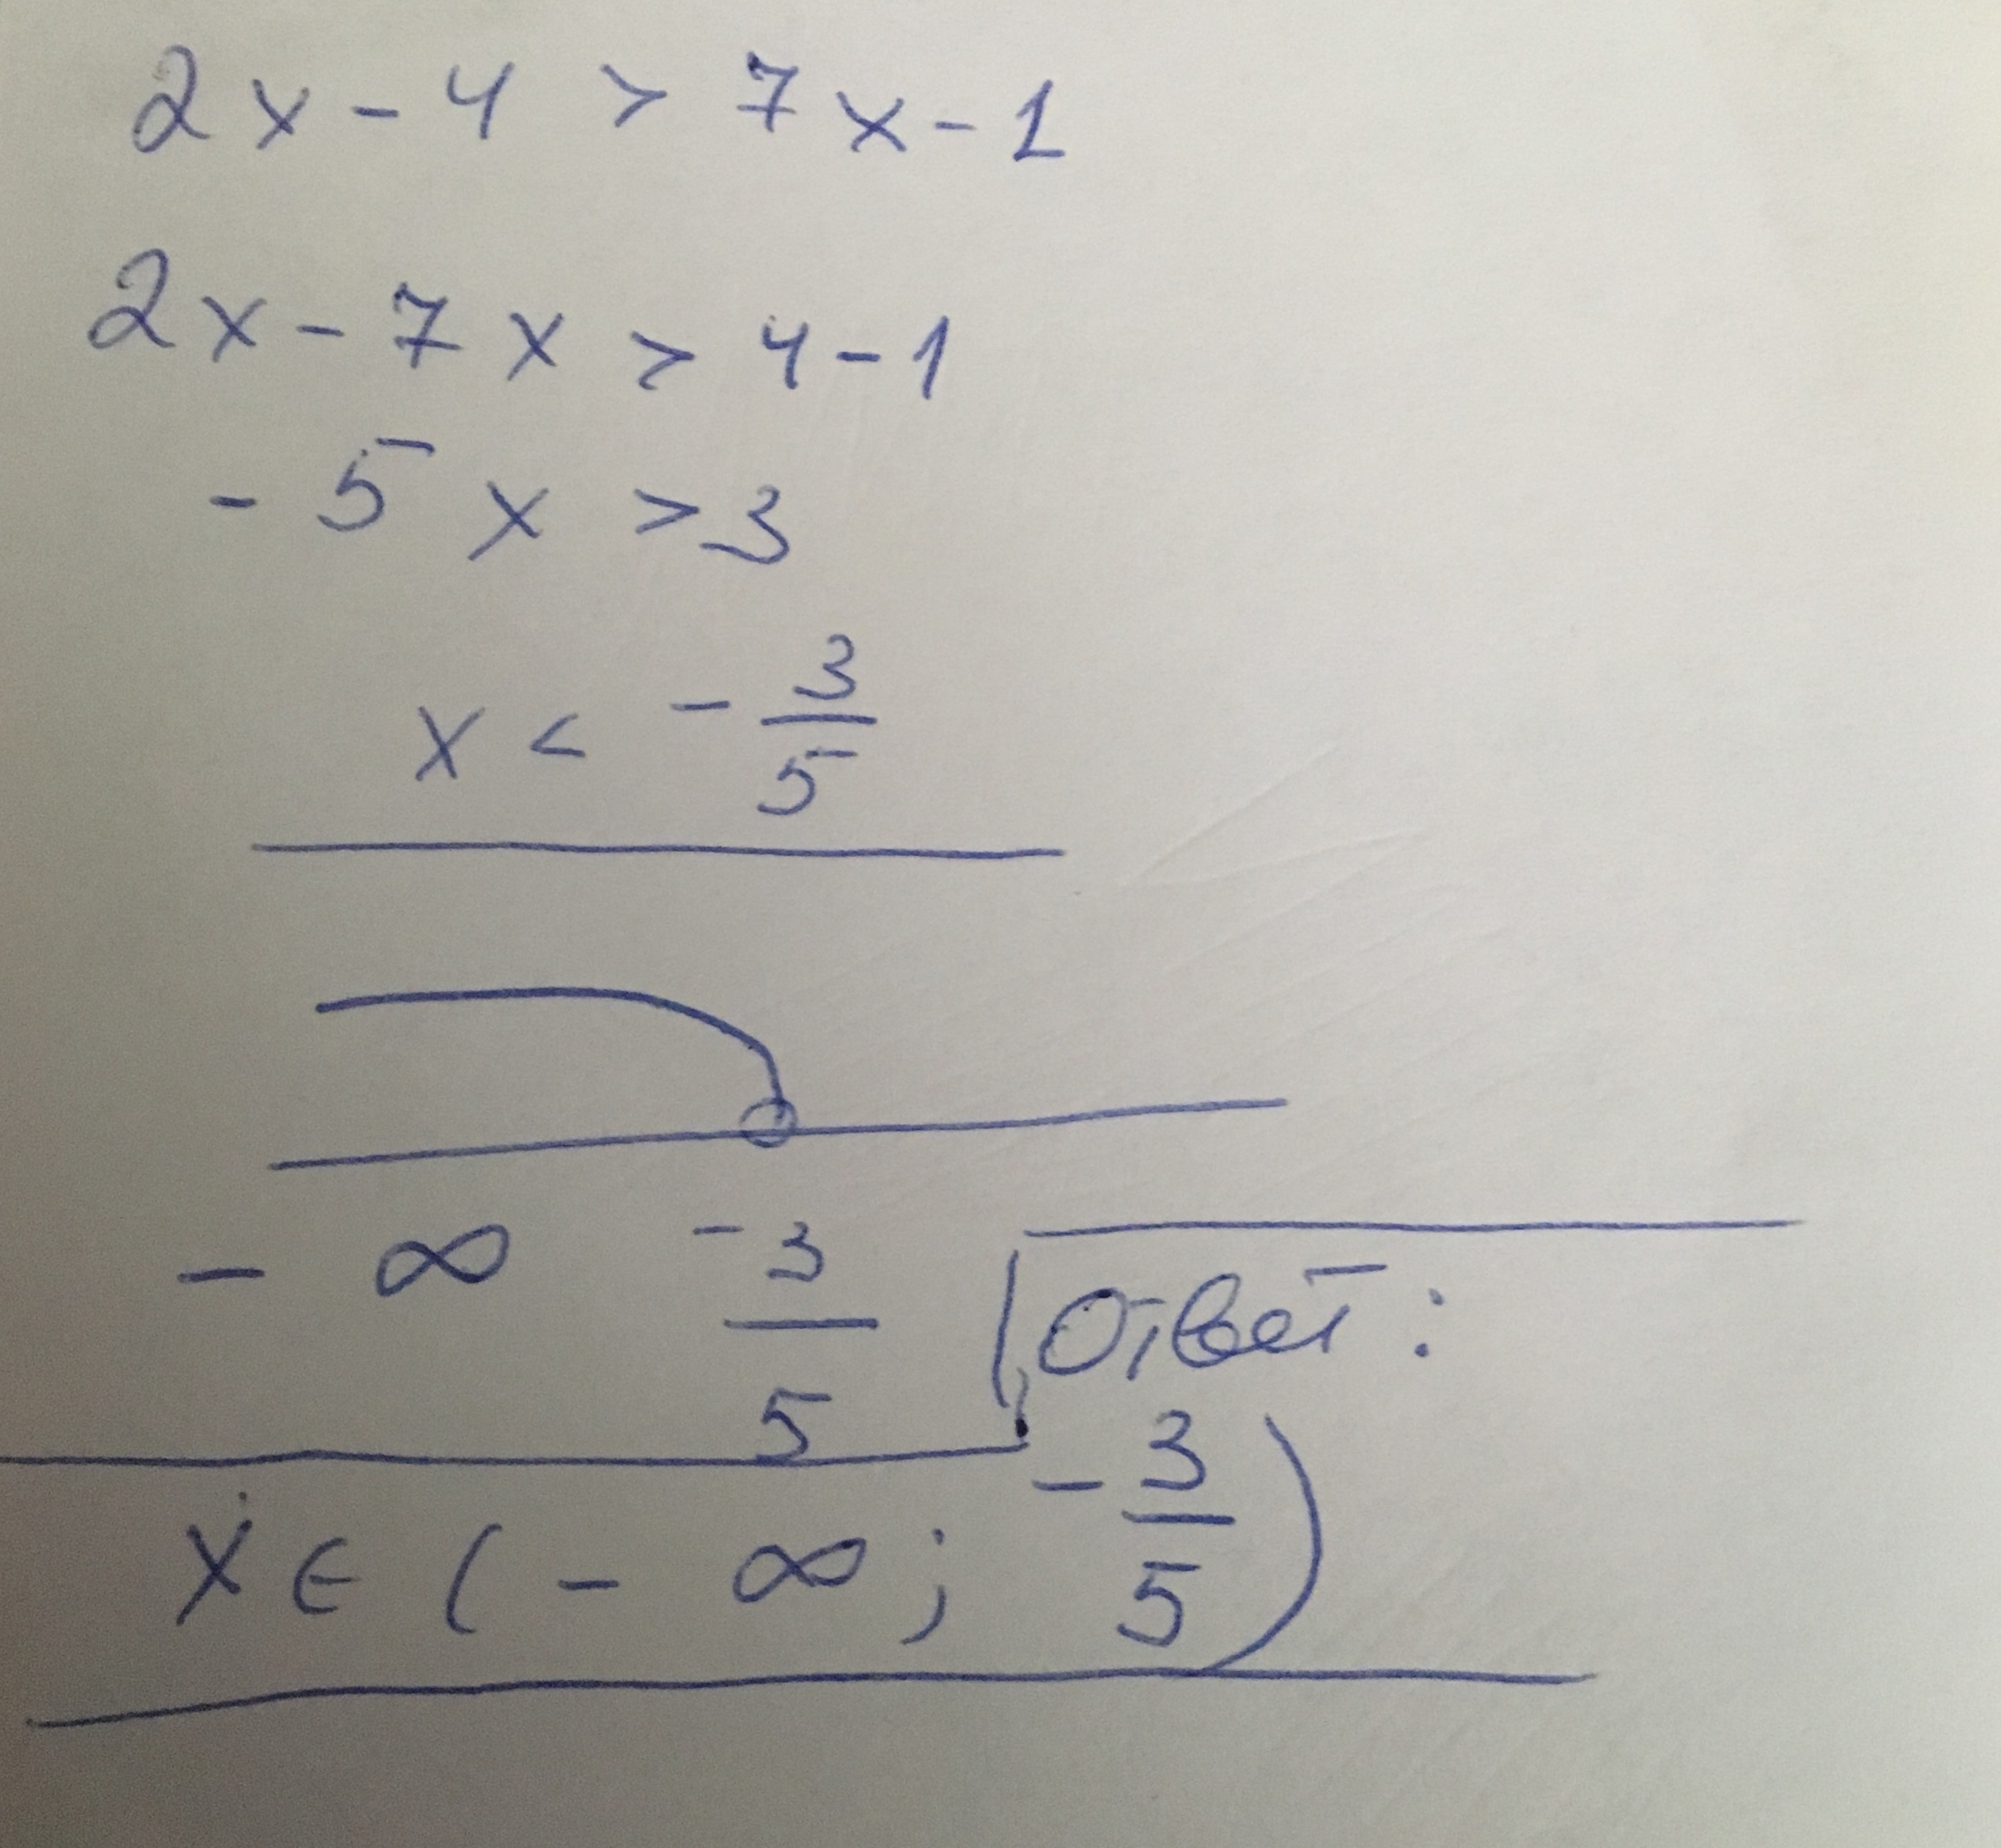 2x - 4 > 7x - 1
2x - 7x > 4 - 1
- 5x > 3
x < - 3/5
- ∞ - 3/5
Ответ:
x ∈ (- ∞ ; - 3/5)